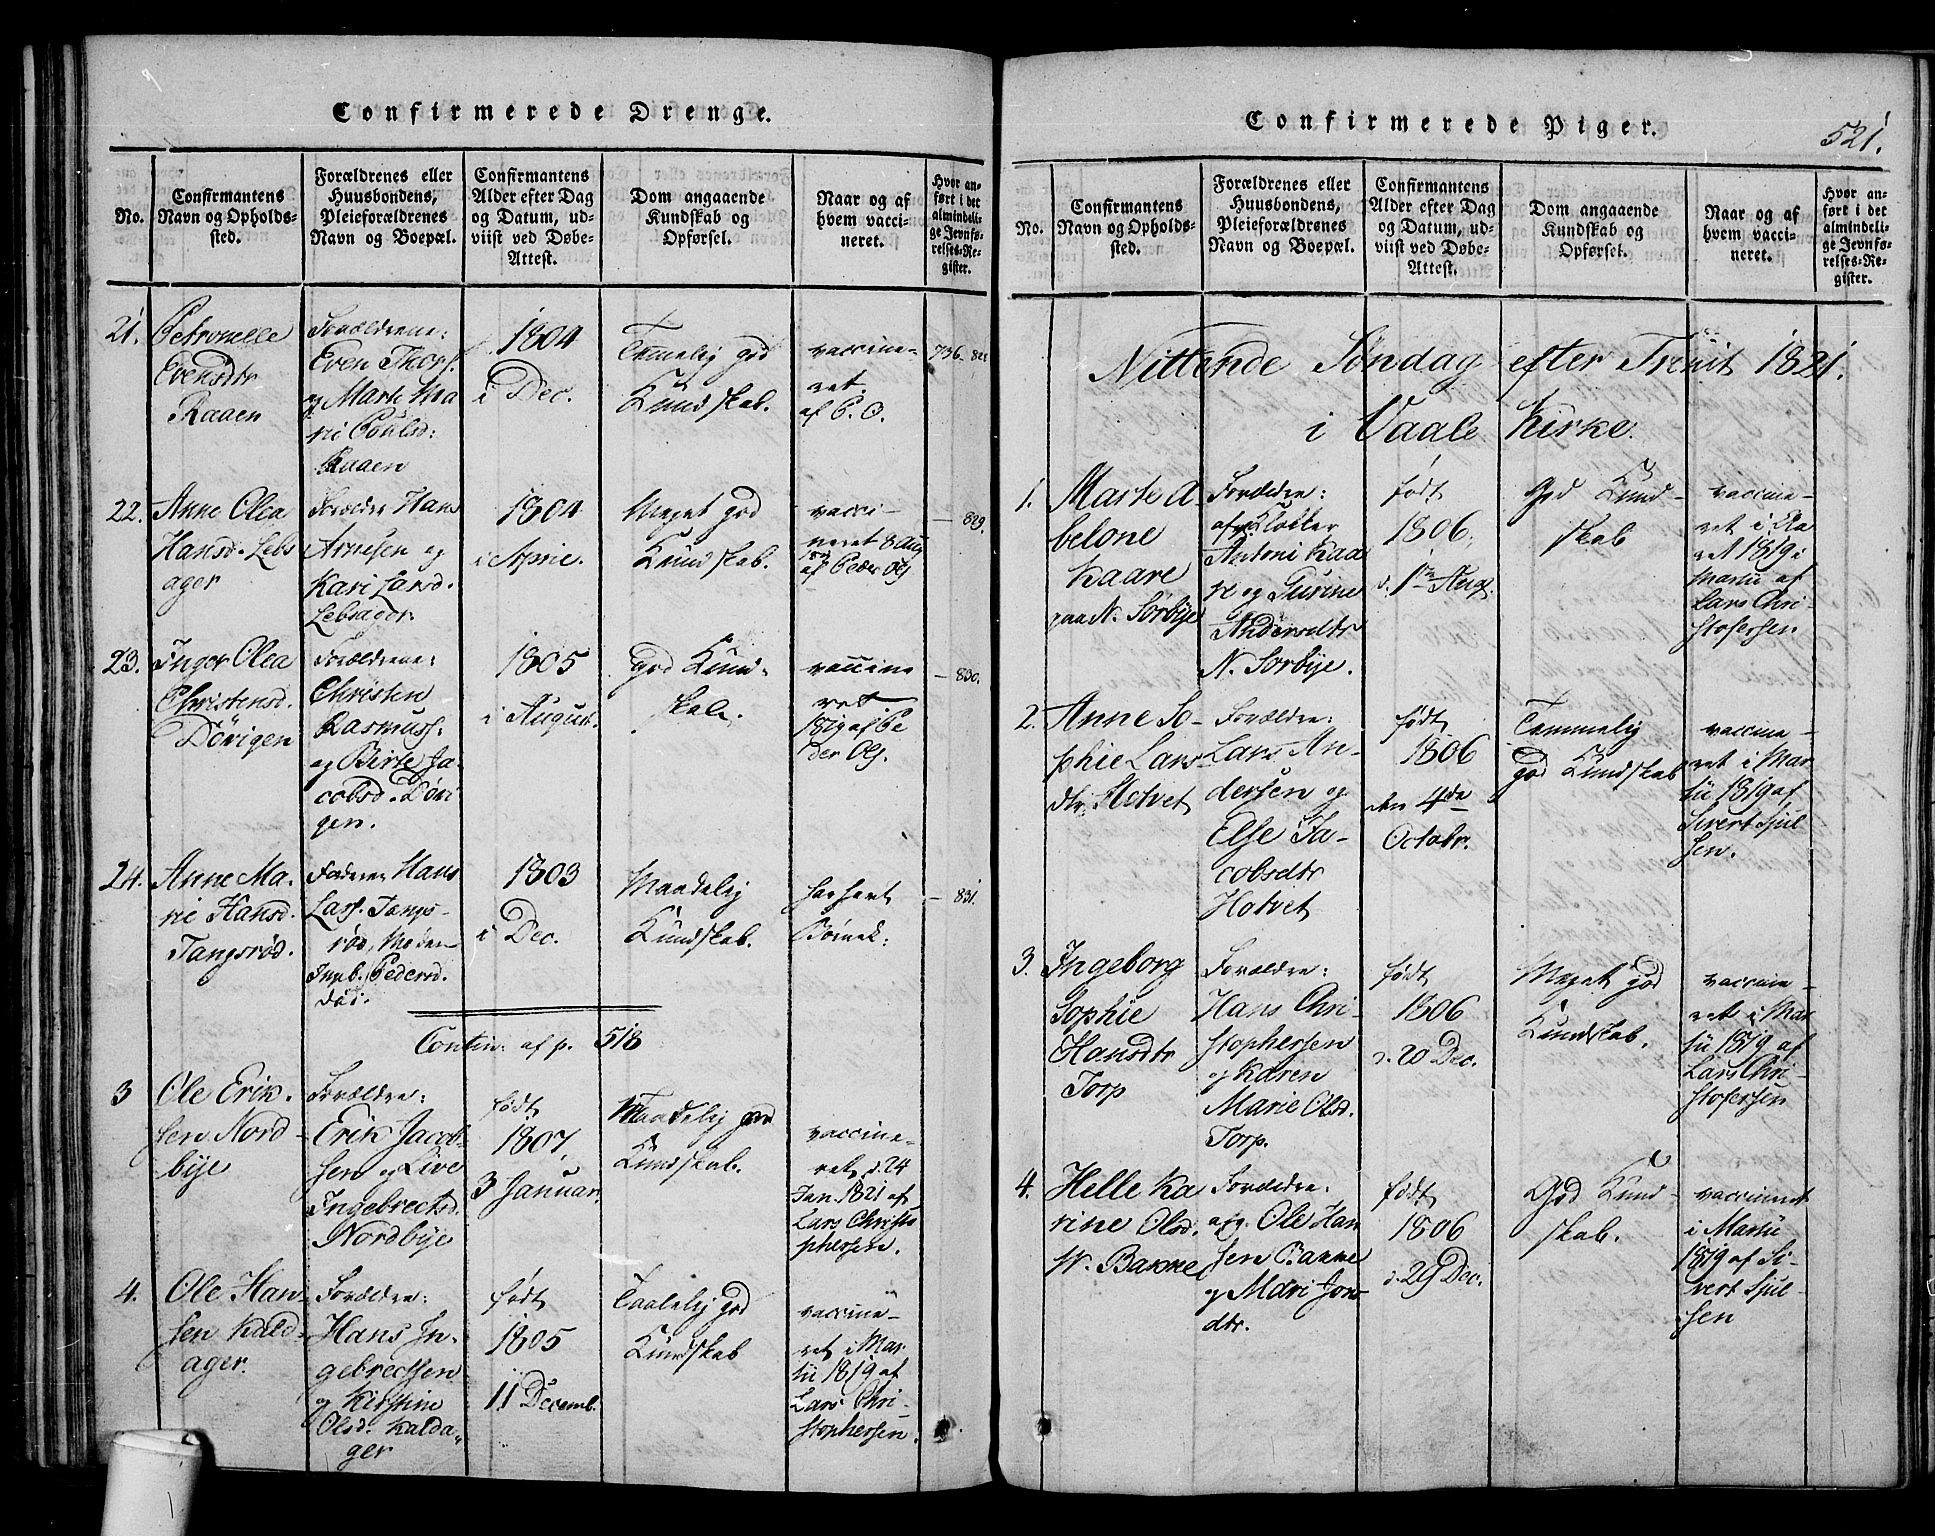 Confirmerede Drenge.
No.
Confirmantens
Navn og Opholds-
sted.
Forældrenes eller
Huusbondens,
Pleieforældrenes
Navn og Boepæl.
Confirmantens
Alder efter Dag
og Datum, ud-
viist ved Døbe-
Attest.
Dom angaaende
Kundskab og
Opførsel.
Naar og af
hvem vacci-
neret.
Hvor an-
ført i det
almindeli-
ge Jevnfø-
relses-Re-
gister.
21.
Petronelle
Evensdtr
Raaen
Forældrene:
Even Thors.
og Marte Ma
ri Poulsd:
Raaen
1804
i Dec.
Temelig god
Kundskab.
vaccine-
ret
af P. O.
736.
22.
Anne Olea
Hansd. Lebs
ager
Forælder Hans
Arnesen og
Kari Larsd.
Lebsager.
1804
i Aprie.
Meget god
Kundskab.
vacci-
neret 8 Aug
af Peder Ols
- 829.
23.
Inger Olea
Christensd.
Dörigen
Forældrene:
Christen
Rasmuss.
og Birte Ja-
cobsd. Döri
gen.
1805
i August.
god Kund-
skab.
vaccine
ret
1819 af Pe
der Ols.
- 830.
24.
Anne Ma-
ri Hansd.
Tangsrød.
Faderen Hans
Lars. Tangs-
rød, Moder
Ingb. Pedersd.
död.
1803
i Dec.
Maadelig
Kundskab.
har havt
- 831.
Contin: af p. 518
3
Ole Erik-
sen Nord-
bije
Forældre:
Erik Jacob-
sen og Live
Ingebrectsd.
Nordbije
født
1807,
3 Januar.
Maadelig god
Kundskab.
vaccine-
ret d. 24
Jan. 1821 af
Lars Christo
phersen.
4.
Ole Han-
sen Kald-
ager.
Forældre:
Hans In-
gebrectsen
og Kirstine
Olsd. Kalda-
ger
født
1805
11 Decemb.
Taalelig god
Kundskab
vaccine-
ret i Mar
tii 1819 af
Lars Chri-
stophersen.
Confirmerede Piger.
521.
No.
Confirmantens
Navn og Opholds-
sted.
Forældrenes eller
Huusbondens,
Pleieforældrenes
Navn og Boepæl.
Confirmantens
Alder efter Dag
og Datum, ud-
viist ved Døbe-
Attest.
Dom angaaende
Kundskab og
Opførsel.
Naar og af
hvem vacci-
neret.
Hvor an-
ført i det
almindeli-
ge Jevnfø-
relses-Re-
gister.
Nittende Søndag efter Trinit 1821.
i Vaale Kirke.
1.
Marte A
belone
Kaare
paa N. Sørbye
Forældre:
afg. Klokker
Antoni Kaa
re og Gurine
Andersdtr
N. Sørbye.
født
1806,
d. 1ste Aug.
God Kund-
skab
vaccine-
ret i Aa
ret 1819 i
Martii af
Lars Chri-
stofersen
2.
Anne So-
phie Lars
dtr. Hotvet
Forældre:
Lars An-
dersen og
Else Ja-
cobsdtr
Hotvet
født
1806
den 4de
Octobr.
Temmelig
god Kundskab
vaccine-
ret i Mar
tii 1819 af
Sivert Sjul-
sen.
3.
Ingeborg
Sophie
Hansdtr
Torp
Forældre:
Hans Chri-
stophersen
og Karen
Marie Olsd.
Torp.
født
1806
d. 20 Dec.
Meget god
Kundskab.
vaccine-
ret i Mar
tii 1819 af
Lars Chri-
stofersen
4.
Helle Ka
rine Olsd.
W. Bakke
Forældre:
afg. Ole Han
sen Bakke
og Mari Jons
dtr.
født
1806
d. 29 Dec.
God Kund-
skab.
vaccineret
i Martii
1819 af Si-
vert Sjul-
sen